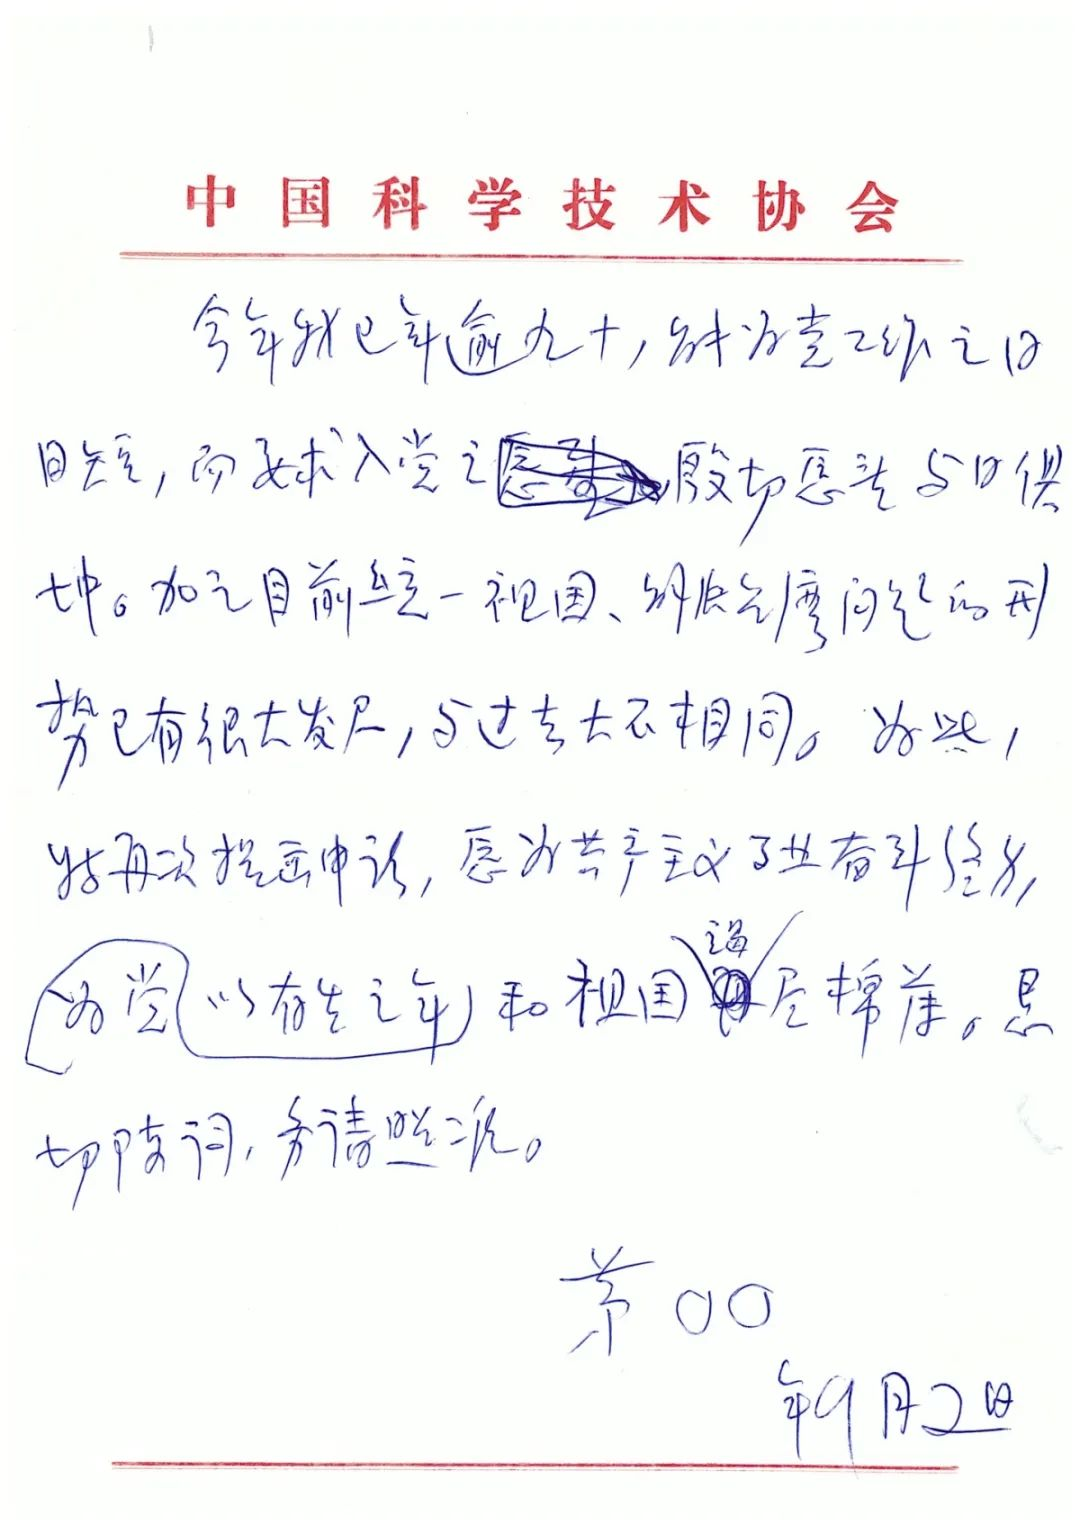 中国科学技术协会
今年我已年逾九十,能为党工作之日
日短,而要求入党之殷切愿望与日俱
增。加之目前统一祖国、问题的形
势已有很大发展,与过去大不相同。为此,
特再次提出申请,愿为共产主义事业奋斗终身,
为党以有生之年和祖国尽棉薄。恳
切陈词,务请照准。
茅〇〇
年9月2日